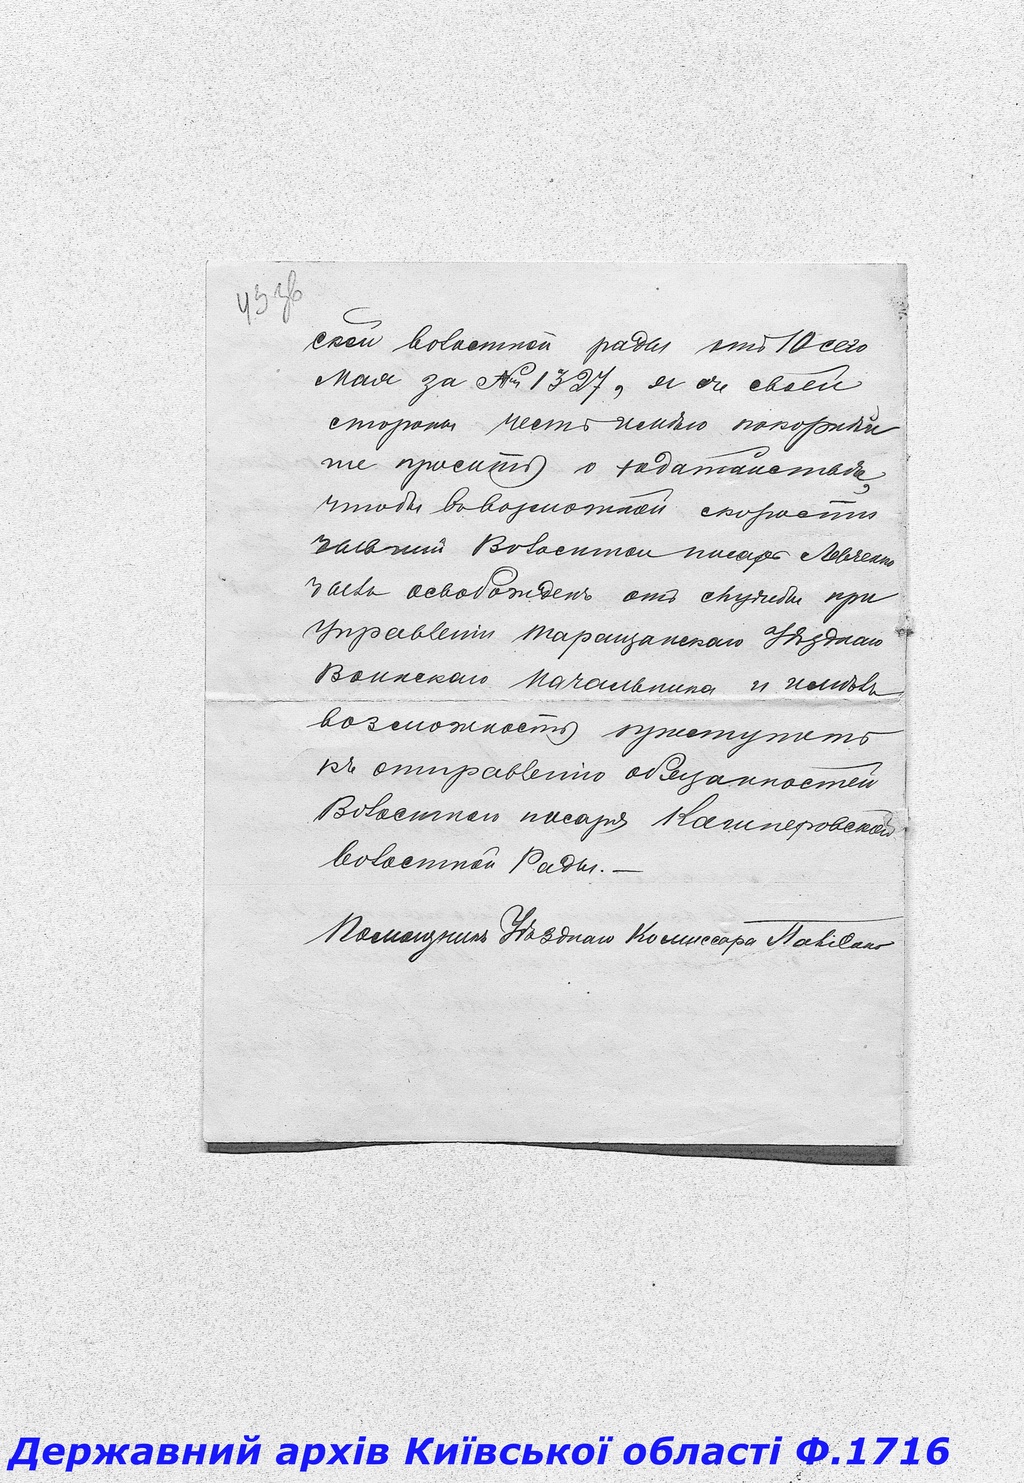 43 зв
ской волостной рады отъ 10 сего
Мая за № 1327, я съ своей
стороны честь имѣю покорнѣй
ше просить о ходатайствѣ,
чтобы в возможной скорости
бывший Волостной писарь Левченко
былъ освобожденъ отъ службы при
Управленіи Таращанскаго Уѣзднаго
Воинскаго Начальника и имѣлъ
возможность приступить
къ отправленію обязанностей
Волостного писаря Кашперовской
волостной Рады. —
Помощникъ Уѣзднаго Комиссара
Державний архів Київської області Ф.1716